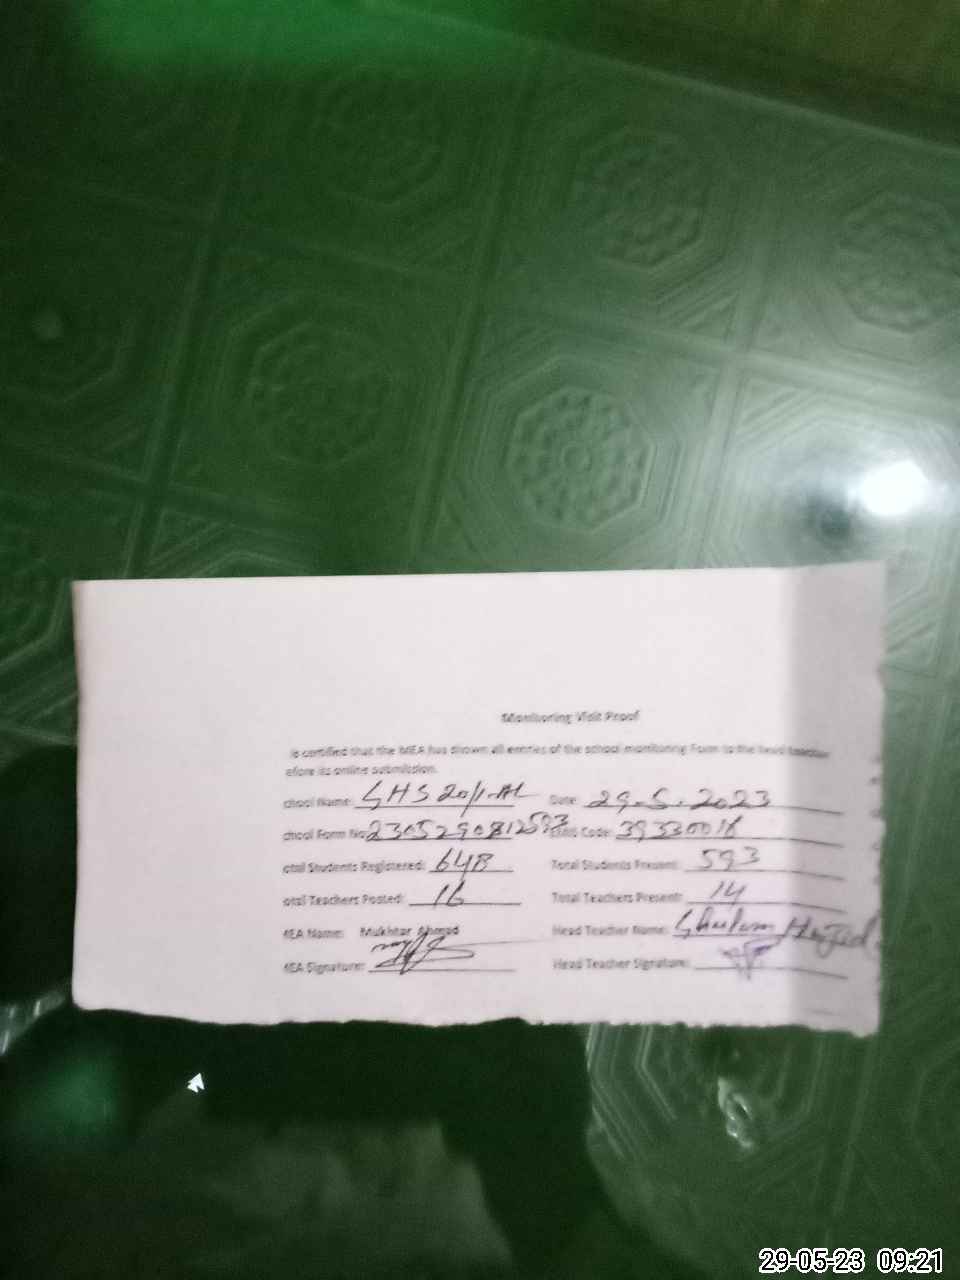 Monitoring Visit Proof
is certified that the MEA has shown all entries of the school monitoring Form to the head teacher
efore its online submission.
chool Name: GHS 20/1-AL Date: 29-5-2023
chool Form No: 2305290812593 EMIS Code: 39330018
otal Students Registered: 648 Total Students Present: 593
otal Teachers Posted: 16 Total Teachers Present: 14
MEA Name: Mukhtar Ahmad Head Teacher Name: Ghulam
MEA Signature: Head Teacher Signature:
29-05-23 09:21